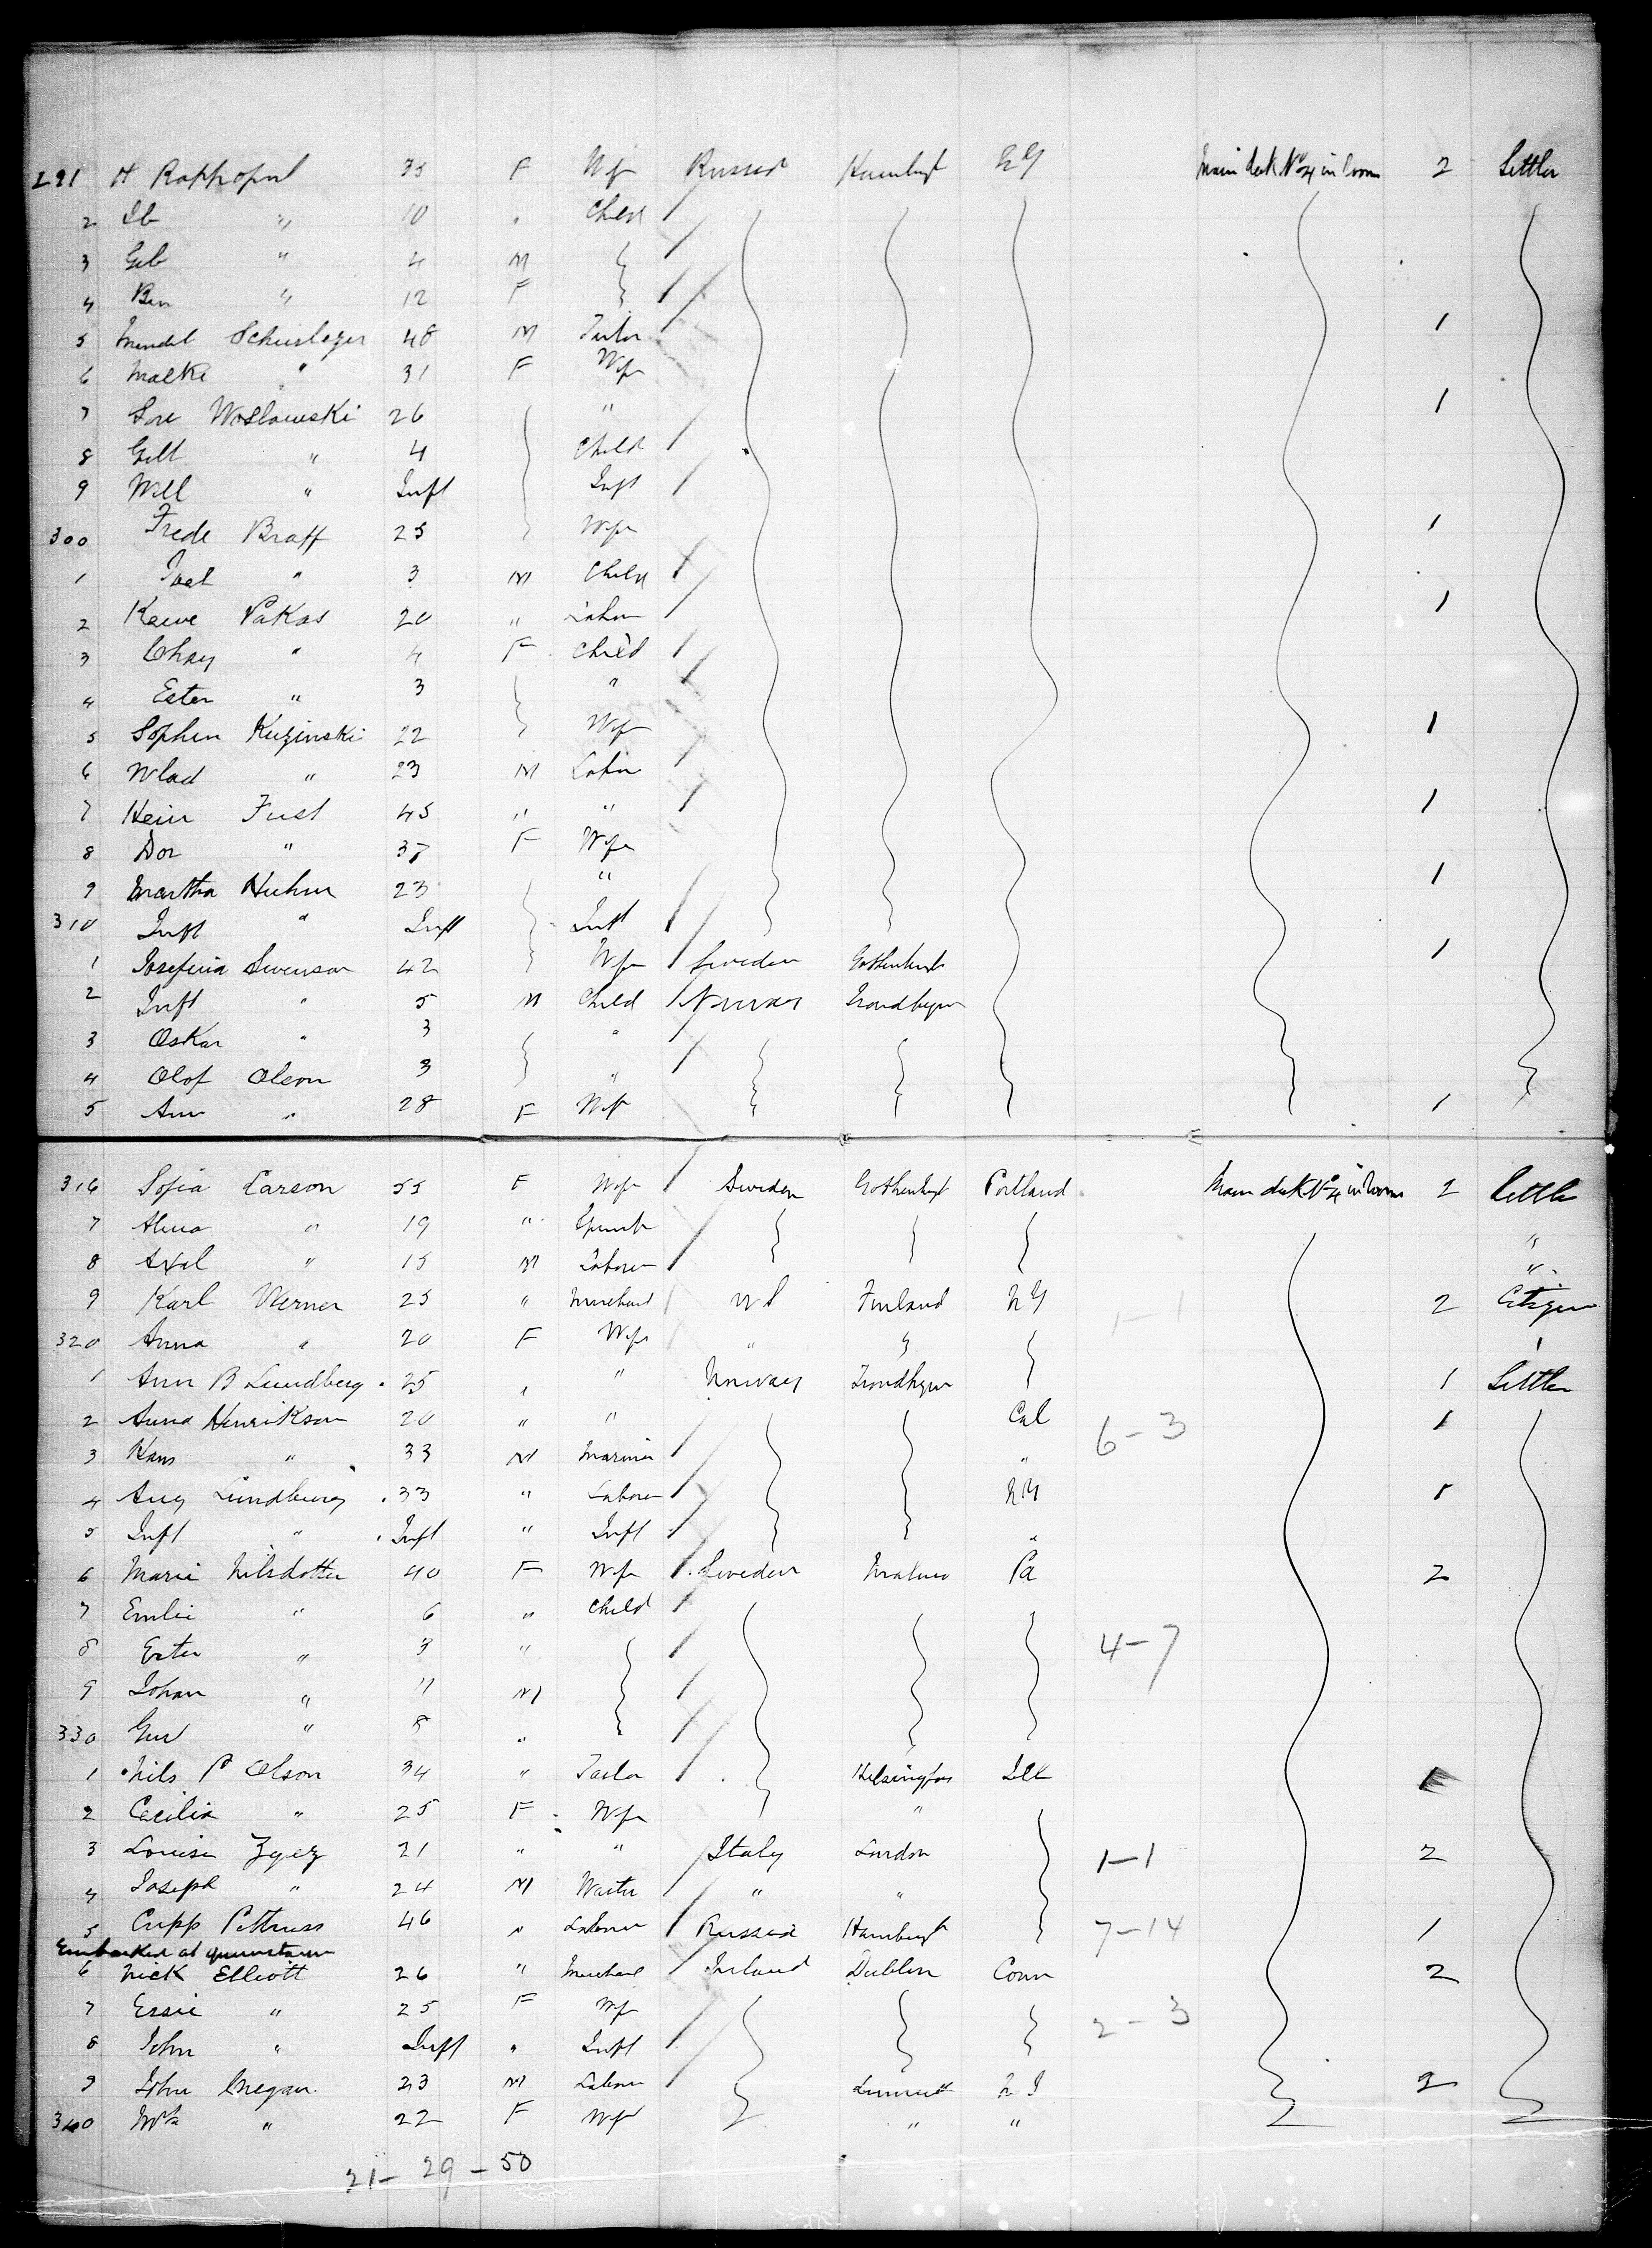 291 H Rappoport 35 F Wife Russia Hamburg NY Main deck No 4 in room 2 Settler
2 " 10 " Child
3 Geb " 4 M
4 Ben " 12 F
5 Mendel 48 M Tailor 1
6 Malke " 31 F Wife
7 Sore Woslawski 26 " 1
8 " 4 Child
9 Will " Inft Inft
300 Frede Braff 25 Wife 1
1 " 3 M Child
2 Pakas 20 " Labor 1
3 Chay " 4 F Child
4 Ester " 3 "
5 Kuzinski 22 Wife 1
6 Wlad " 23 M Labor
7 Hein Fust 45 " " 1
8 Dor " 37 F Wife
9 Martha 23 " 1
310 Inft " Inft Inft
1 Josefina Swenson 42 Wife Sweden Gothenburg 1
2 Inft " 5 M Child Norway Trondhjem
3 Oskar " 3 "
4 Olof Olson 3 "
5 Ann " 28 F Wife 1
316 Sofia Larson 55 F Wife Sweden Gothenburg Portland Main deck No 4 in room 2 Settler
7 Alma " 19 " "
8 Axel " 15 M Laborer "
9 Karl Werner 25 " Merchant US Finland NY 1-1 2 Citizen
320 Anna " 20 F Wife " "
1 Ann B Lundberg 25 " " Norway Trondhjem 1 Settler
2 Anna Henrikson 20 " " Cal 6-3 1
3 Hans " 33 M Mariner "
4 Aug Lundburg 33 " Laborer NY 1
5 Inft " Inft " Inft "
6 Marie Nilsdotter 40 F Wife Sweden Malmo Pa 2
7 Emlie " 6 " Child
8 Ester " 3 " 4-7
9 Johan " 11 M
330 Gus " 8 "
1 Nils P Olson 34 " Tailor Helsingfors Ill
2 Cecilia " 25 F Wife "
3 Louise 21 " " Italy London 1-1 2
4 Joseph " 24 M Waiter " "
5 46 " Laborer Russia Hamburg 7-14 1
Embarked at Queenstown
6 Nick Elliott 26 " Merchant Ireland Dublin Conn 2
7 Essie " 25 F Wife 2-3
8 John " Inft " Inft
9 John 23 M Labor 2
340 Mrs " 22 F Wife " "
21-29-50